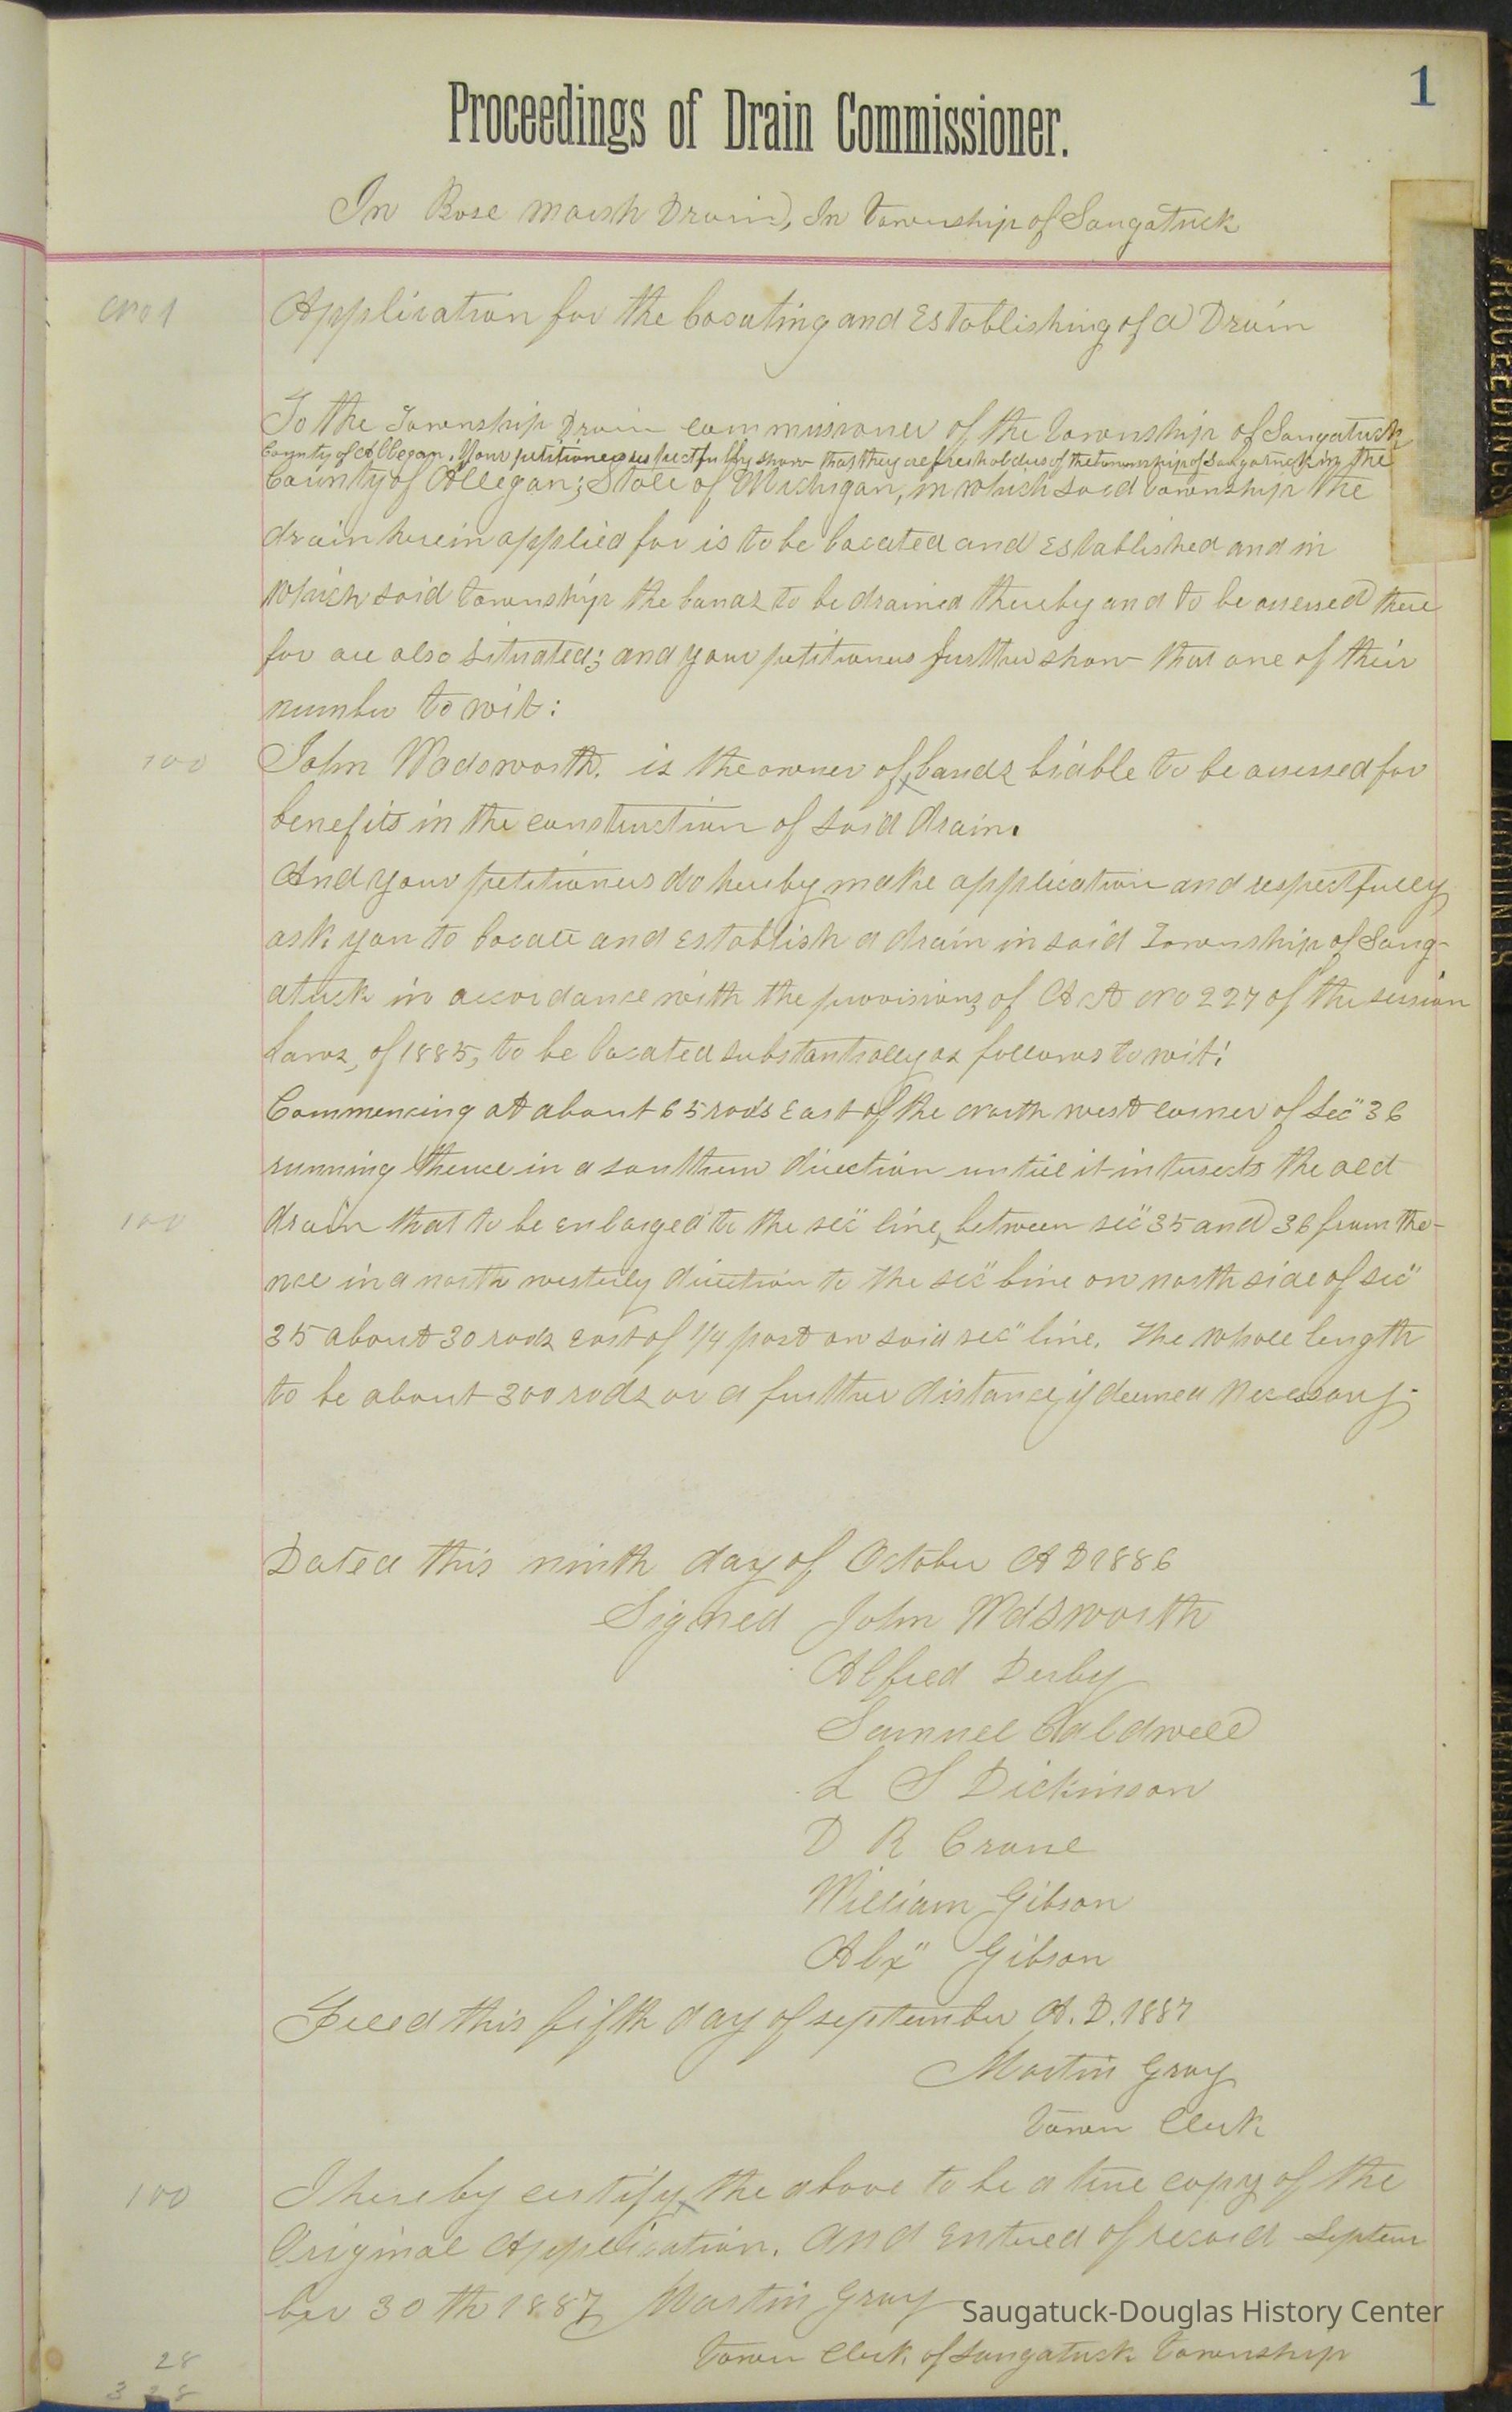 1
Proceedings of Drain Commissioner.
In Rose Marsh Drain, In Township of Saugatuck
No 1
Application for the Locating and Establishing of a Drain
To the Township Drain commissioner of the Township of Saugatuck
County of Allegan. Your petitioners respectfully show that they are freeholders of the township of Saugatuck in the
County of Allegan; State of Michigan, in which said Township the
drain herein applied for is to be located and established and in
which said Township the lands to be drained thereby and to be assessed there
for are also situated; and your petitioners further show that one of their
number to wit:
100
John Wadsworth. is the owner of lands liable to be assessed for
benefits in the construction of said drain.
And your petitioners do hereby make application and respectfully
ask you to locate and establish a drain in said Township of Saug-
atuck in accordance with the provisions of Act No 227 of the session
Laws, of 1885, to be located substantially as follows to wit:
Commencing at about 65 rods East of the north west corner of Sec" 36
running thence in a southern direction until it intersects the old
100
drain that to be enlarged to the sec" line, between sec" 35 and 36 from the-
nce in a north westerly direction to the sec" line on north side of sec"
35 about 30 rods east of 1/4 post on said sec" line. The whole length
to be about 300 rods or a further distance if deemed necessary.
Dated this ninth day of October A D 1886
Signed John Wdsworth
Alfred Derby
Samuel Caldwell
L S Dickinson
D R Crane
William Gibson
Alx" Gibson
Filed this fifth day of september A. D. 1887
Martin Gray
Town Clerk
100
I hereby certify the above to be a true copy of the
Original Application. And Entered of record Septem
ber 30 th 1887 Martin Gray
Saugatuck-Douglas History Center
Town Clerk of Saugatuck Township
28
328